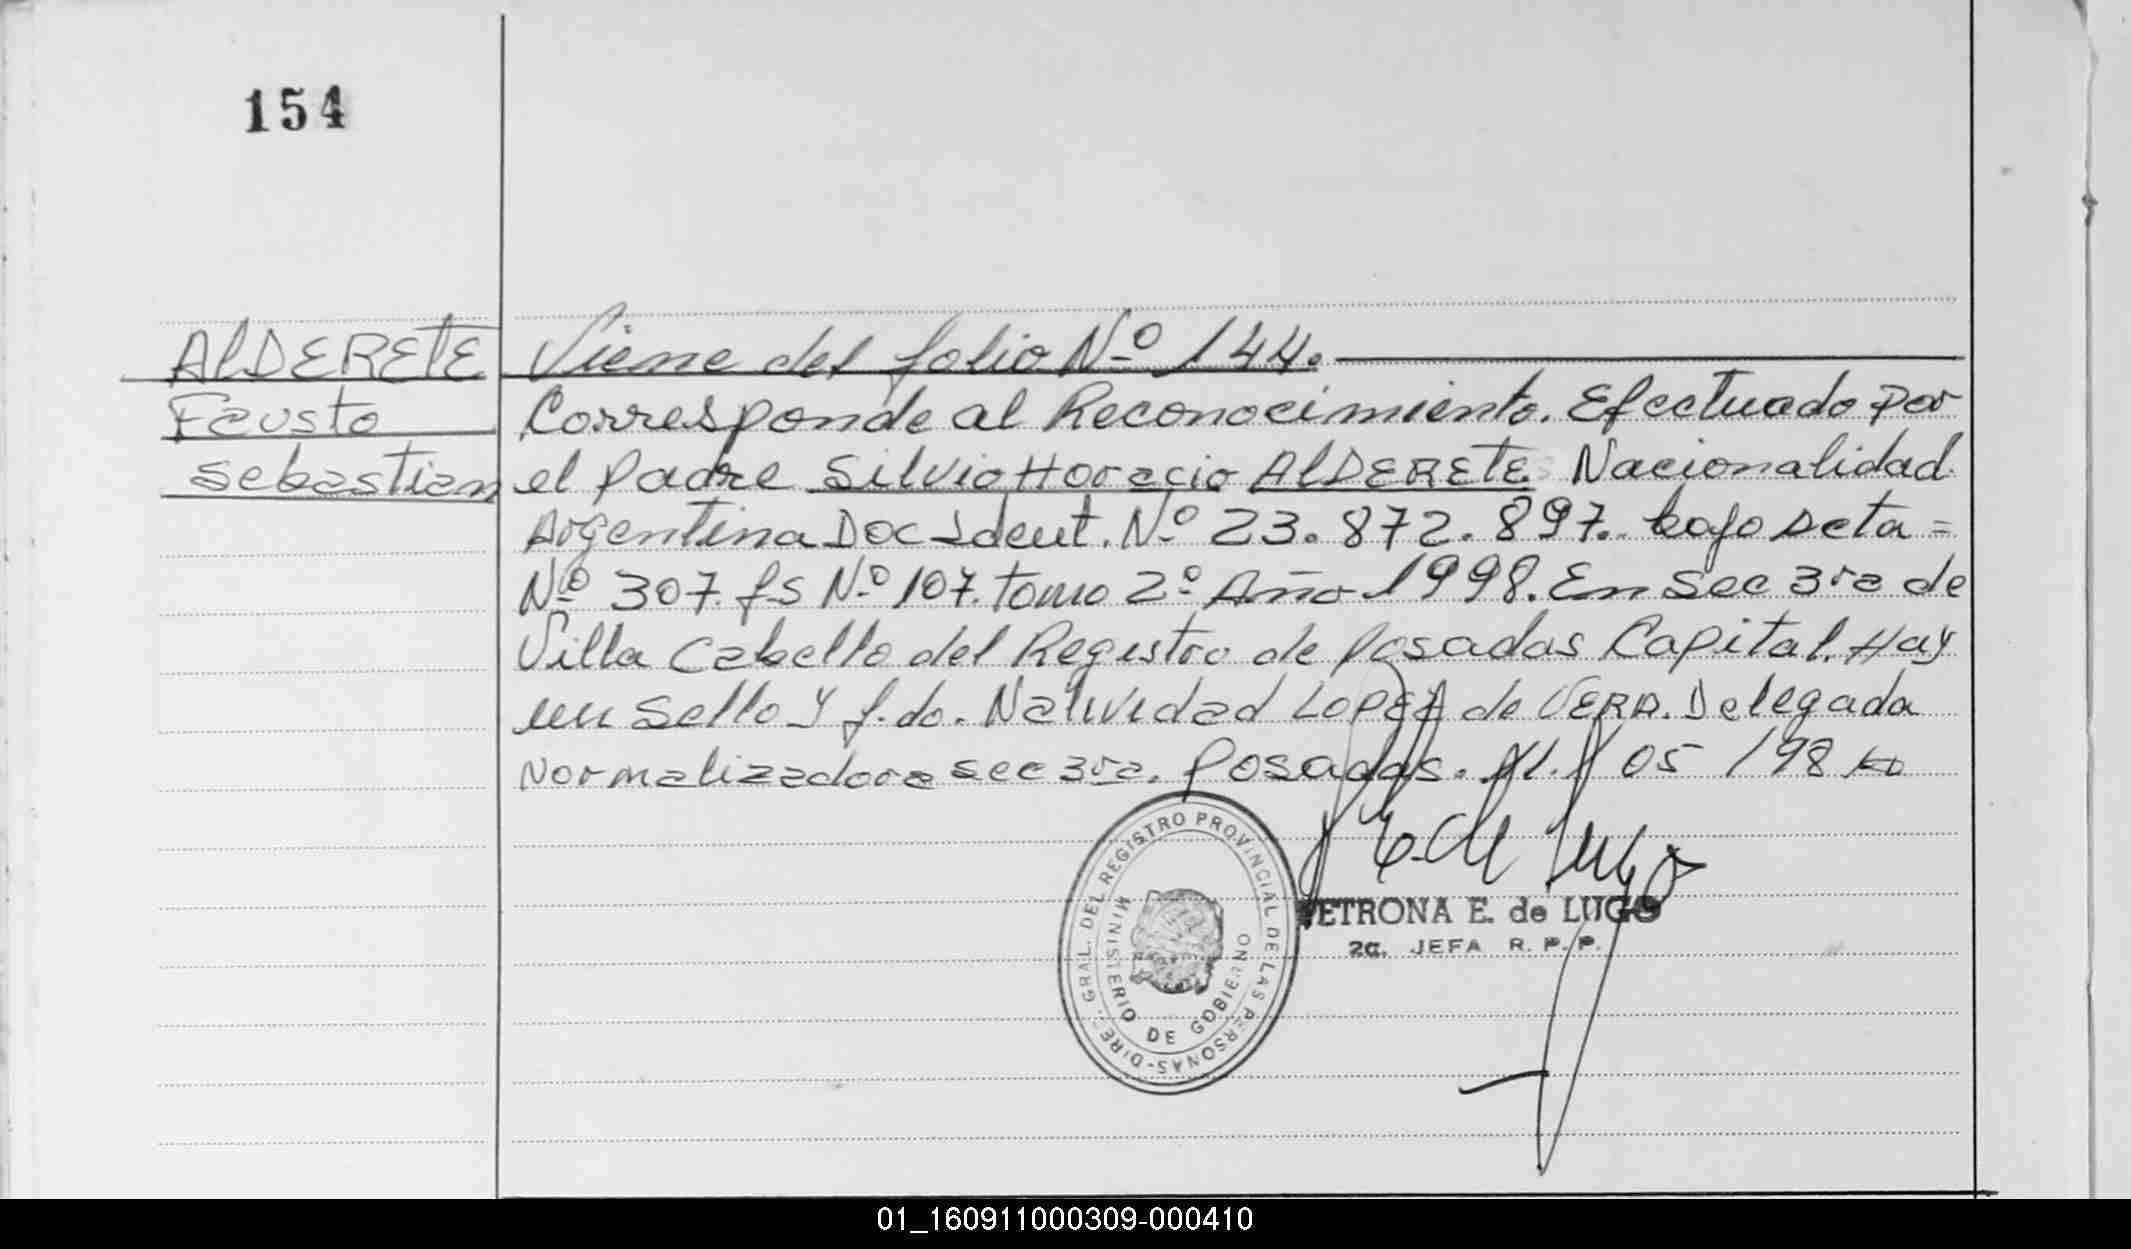 154
ALDERETE Viene del folio Nº 144.
Fausto Corresponde al Reconocimiento. Efectuado por
sebastian el padre Silvio Horacio ALDERETE Nacionalidad
Argentina Doc Ident. Nº 23.872.897. bajo acta =
Nº 307. fs Nº 107. tomo 2º Año 1998. En Sec 3ra de
Villa Cabello del Registro de Posadas Capital. Hay
un Sello y f.do. Natividad LOPEZ de VERA. Delegada
Normalizadora sec 3ra. Posadas. 05 / 98
DIREC. GRAL. DEL REGISTRO PROVINCIAL DE LAS PERSONAS-
MINISTERIO DE GOBIERNO
E. de Lugo
PETRONA E. de LUGO
2a. JEFA R. P. P.
01_160911000309-000410